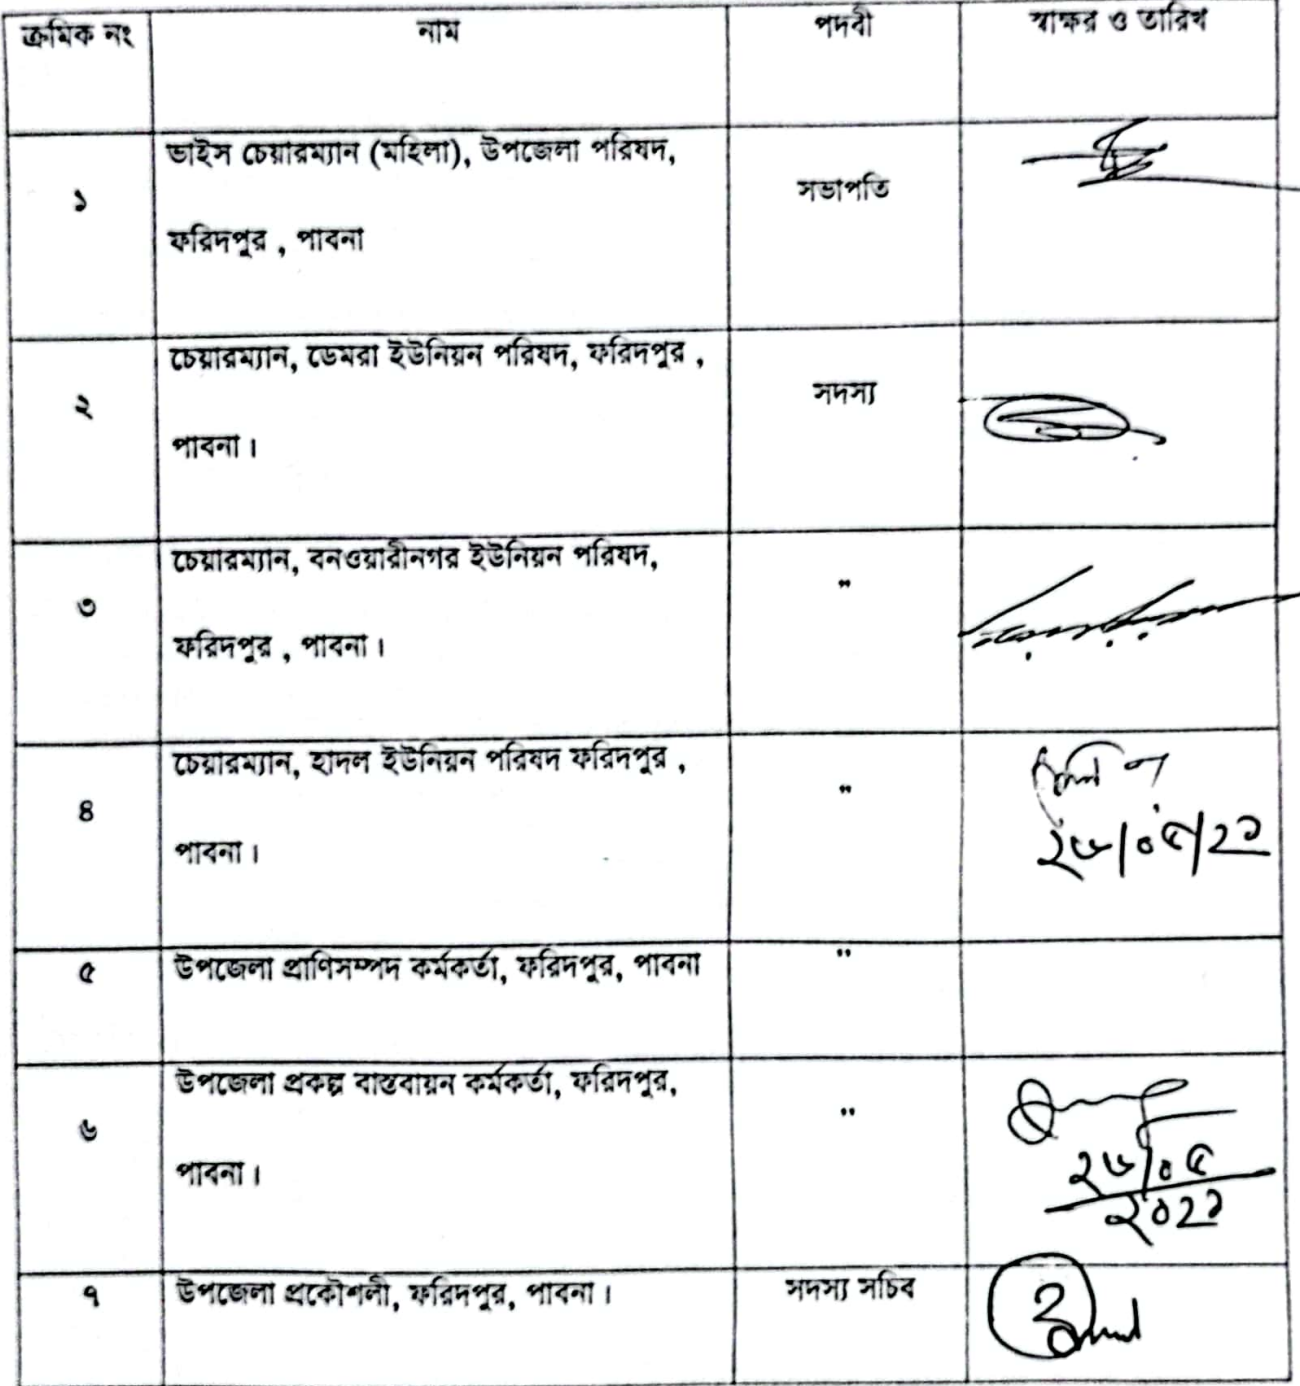 ক্রমিক নং নাম পদবী স্বাক্ষর ও তারিখ
১ ভাইস চেয়ারম্যান (মহিলা), উপজেলা পরিষদ, সভাপতি
ফরিদপুর , পাবনা
২ চেয়ারম্যান, ডেমরা ইউনিয়ন পরিষদ, ফরিদপুর , সদস্য
পাবনা।
৩ চেয়ারম্যান, বনওয়ারীনগর ইউনিয়ন পরিষদ, "
ফরিদপুর , পাবনা।
৪ চেয়ারম্যান, হাদল ইউনিয়ন পরিষদ ফরিদপুর , "
পাবনা। ২৬/০৫/২১
৫ উপজেলা প্রাণিসম্পদ কর্মকর্তা, ফরিদপুর, পাবনা "
৬ উপজেলা প্রকল্প বাস্তবায়ন কর্মকর্তা, ফরিদপুর, "
পাবনা। ২৬/০৫
২০২১
৭ উপজেলা প্রকৌশলী, ফরিদপুর, পাবনা। সদস্য সচিব